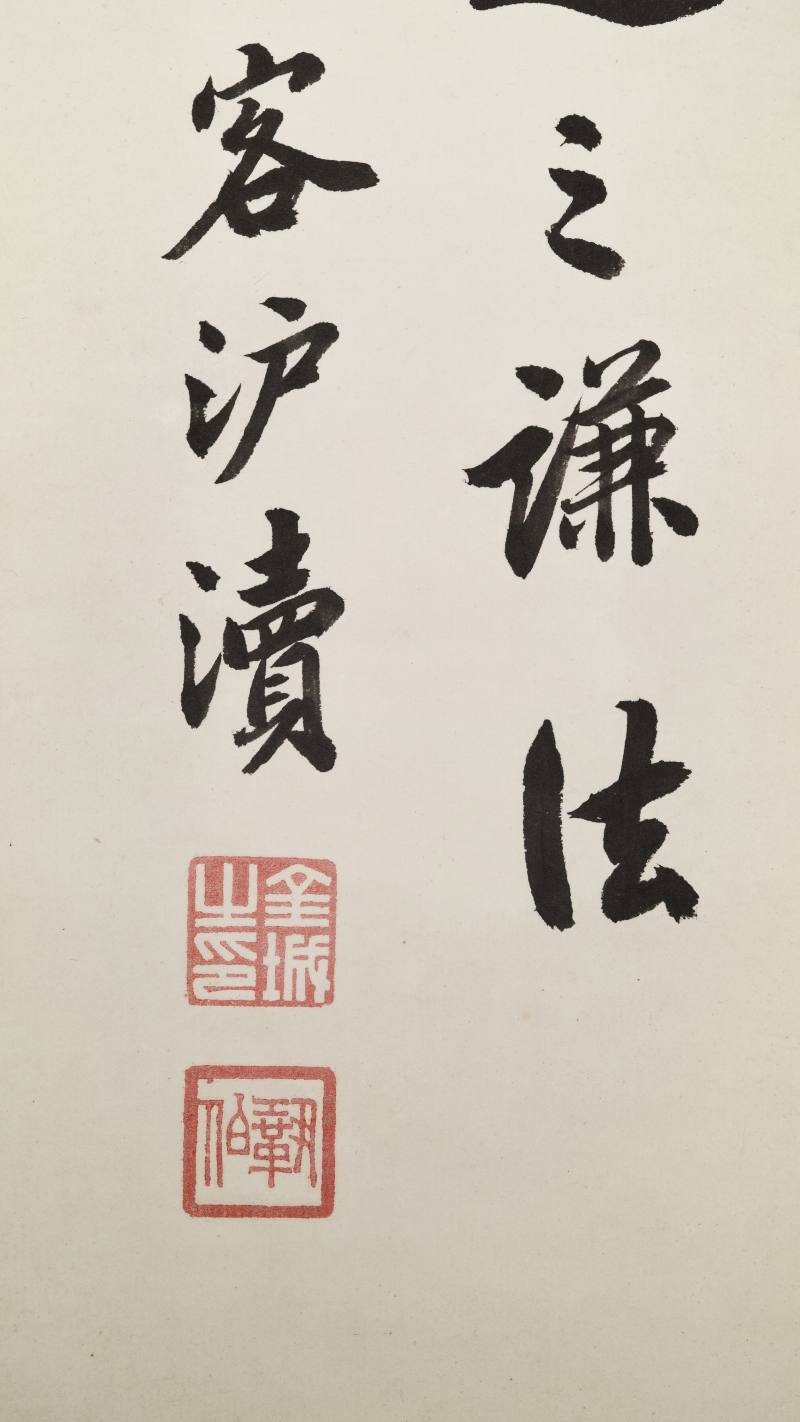 之謙法
客沪瀆
金城
之印
鞏伯